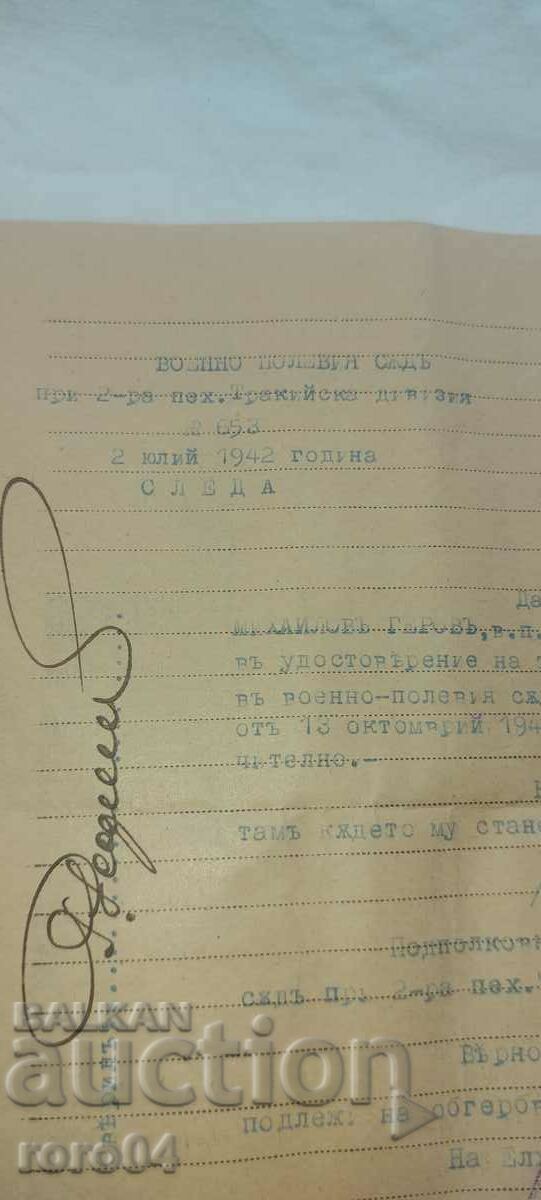 ВОЕННО ПОЛЕВИЯ СѪДЪ
при 2-ра пех. Тракийска дивизия
№ 653
2 юлий 1942 година
С Л Е Д А
Да
МИХАИЛОВЪ ГЕРОВЪ, в.п.
въ удостовѣрение на
въ военно-полевия сѫд
отъ 13 октомврий 194
чително.-
там ъ кѫдето му стане
Подполковн
сѫдъ при 2-ра пех.
Вѣрно
подлеж на обгербв
На Ел
BALKAN
auction
roro04